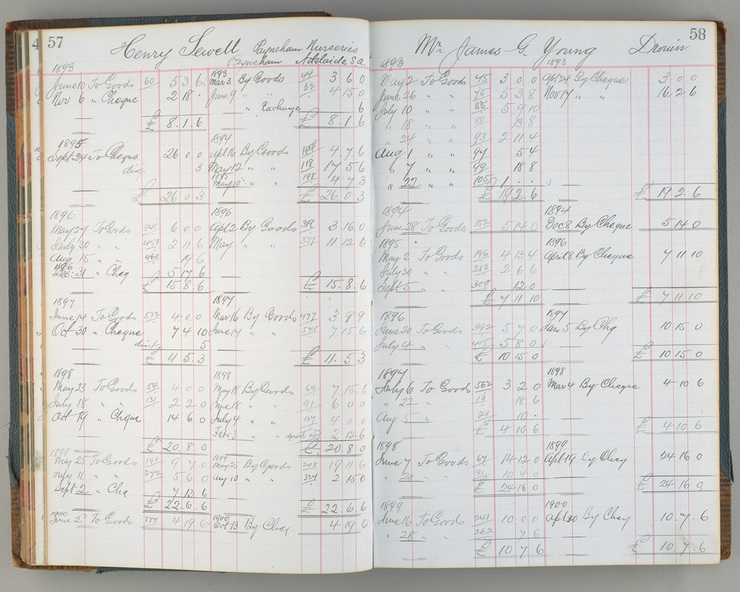 57
Henry Sewell Payneham Nurseries
Payneham Adelaide S.a.
1893 1893
June 10 To Goods 60 5 3 6 Mar 3 By Goods 44 3 6 0
Nov 6 " Cheque 2 18 - June 9 " " 4 15 0
" " Exchange 6
£ 8.1.6 £ 8 1 6
1895 1894
Sept 24 To Cheque 26 0 0 Apl 16 By Goods 4 7 6
3 May 12 " " 118 17 5 6
1895
4 7 3
£ 26 0 3 £ 26 0 3
1896 1896
May 27 To Goods 341 6 0 0 Apl 2 By Goods 3 16 0
July 30 " " 2 11 6 May " " 11 12 6
Aug 15 " " 460 19 6
31 " Chq 5 17 6
£ 15.8.6 £ 15.8.6
1897 1897
June 14 To Goods 4 0 0 Mar 16 By Goods 3 9 9
Oct 30 " Cheque 7 4 10 June 14 " " 7 15 6
5
£ 11 5 3 £ 11 5 3
1898 1898
May 23 To Goods 4 0 0 May 18 By Goods 7 15 6
July 18 " " 131 2 2 0 " 18 " 91 6 0 0
Oct 19 " Chque 14 6 0 July 4 " " 4 0 0
Feb 3 " 2 12 6
£ 20.8.0 £ 20.8.0
1899 1899
May 25 To Goods 9 7 0 May 25 By Goods 208 19 11 6
July 11 " " 272 5 6 0 Aug 10 " " 324 2 15 0
Sept 2 " Chq 7 13 6
£ 22.6.6 £ 22 6 6
1900 1900
June 2 To Goods 4 19 6 Oct 13 By Chq 4 19 6
58
Mr James G. Young Drouin
1893 1893
May 2 To Goods 45 3 0 0 Apl 24 By Cheque 3 0 0
June 26 " " 75 5 3 8 Nov 14 " " 16 2 6
July 10 " " 85 5 9 10
" 18 " "
" 24 " " 93 2 11 4
Aug 1 " " 94 5 4
" 7 " " 99 18 8
" 22 " " 105 1
£ 19 2 6 £ 19 2 6
1894 1894
June 28 To Goods 152 5 14 0 Dec 8 By Cheque 5 14 0
1895 1896
May 2 To Goods 196 4 13 4 April 8 By Cheque 7 11 10
July 30 " " 283 2 6 6
Sept 5 " " 309 12 0
£ 7 11 10 £ 7 11 10
1896 1897
June 20 To Goods 392 5 7 0 Jan 5 By Chq 10 15 0
July 4 " " 5 8 0
£ 10 15 0 £ 10 15 0
1897 1898
July 6 To Goods 562 3 2 0 Mar 4 By Cheque 4 10 6
" 22 " " 13 18 6
Aug 5 " " 21 10 -
£ 4 10 6 £ 4 10 6
1898 1899
June 7 To Goods 67 14 12 0 Apl 19 By Chq 24 16 0
" 20 " " 91 10 4 0
£ 24 16 0 £ 24 16 0
1899 1900
June 16 To Goods 241 10 0 0 Apl 30 By Chq 10.7.6
" 28 " " 262 7 6
£ 10 7 6 £ 10 7 6